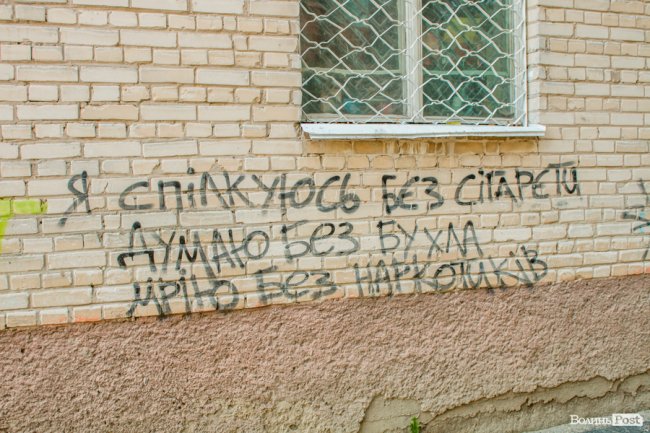 Я СПІЛКУЮСЬ БЕЗ СІГАРЕТИ
ДУМАЮ БЕЗ БУХЛА
МРІЮ БЕЗ НАРКОТИКІВ
ВолиньPost